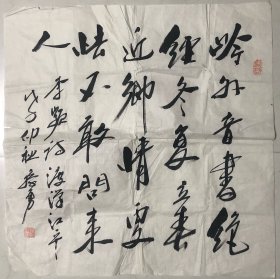 岭外音书绝
经冬复立春
近乡情更
怯不敢问来
人
李频诗渡汉江
戊子仰